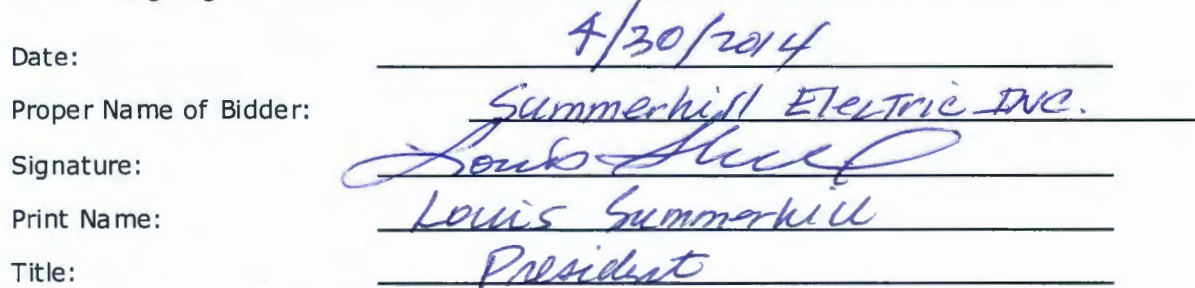 Date: 4/30/2014
Proper Name of Bidder: Summerhill Electric INC.
Signature: Louis
Print Name: Louis Summerhill
Title: President